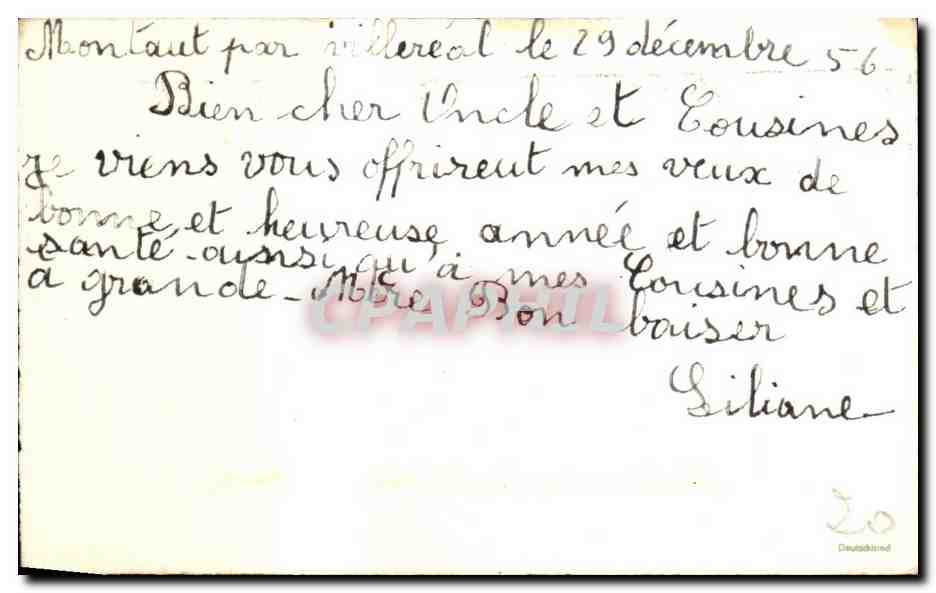 Montaut par villeréal le 29 décembre 56
Bien cher Uncle et Cousines
je viens vous offrirent mes veux de
bonne et heureuse année et bonne
santé ainsi qu'à mes Cousines et
a grande-Mère Bon baiser
Liliane
CPAPHIL
20
Deutschland